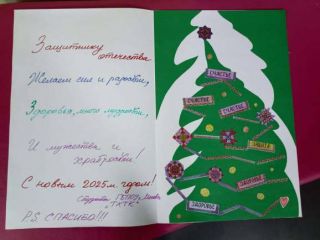 Защитнику
отечества
Желаем сил и радости,
Здоровья, много мудрости,
И мужества и
храбрости!
С новым 2025м годом!
Студенты ГБПОУ г. Москвы
"ТХТК"
P.S. СПАСИБО!!!
СЧАСТЬЕ
СЧАСТЬЕ
СЧАСТЬЕ
СЧАСТЬЕ
УДАЧИ
ЗДОРОВЬЕ
ЗДОРОВЬЕ
ЗДОРОВЬЕ